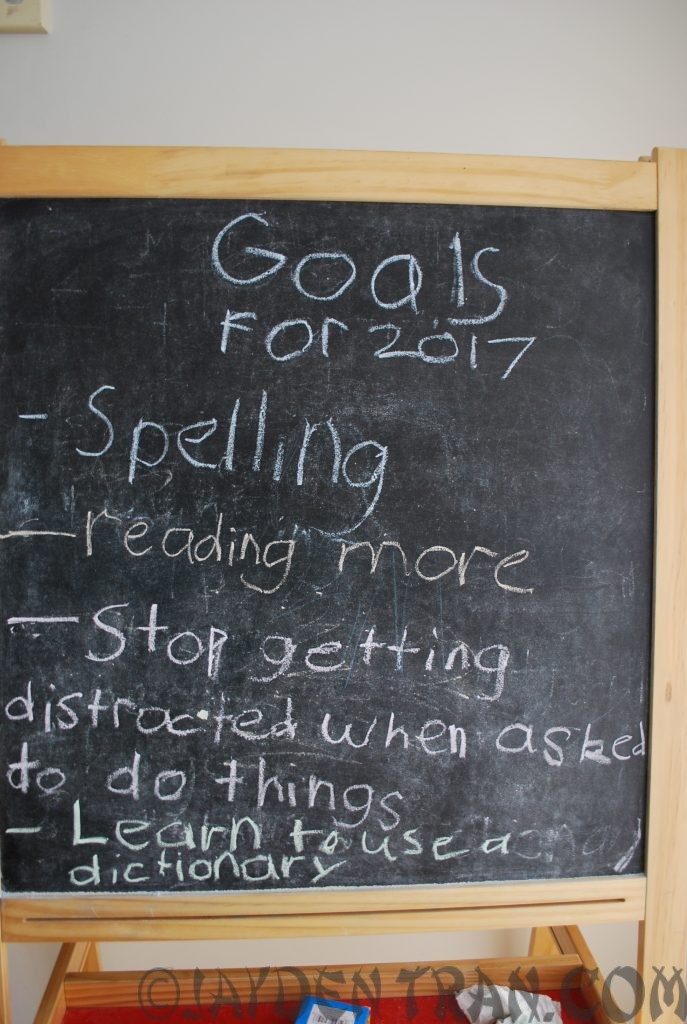 Goals
For 2017
- Spelling
- reading more
- Stop getting
distracted when asked
to do things
- Learn to use a
dictionary
©JAYDEN TRAN.COM